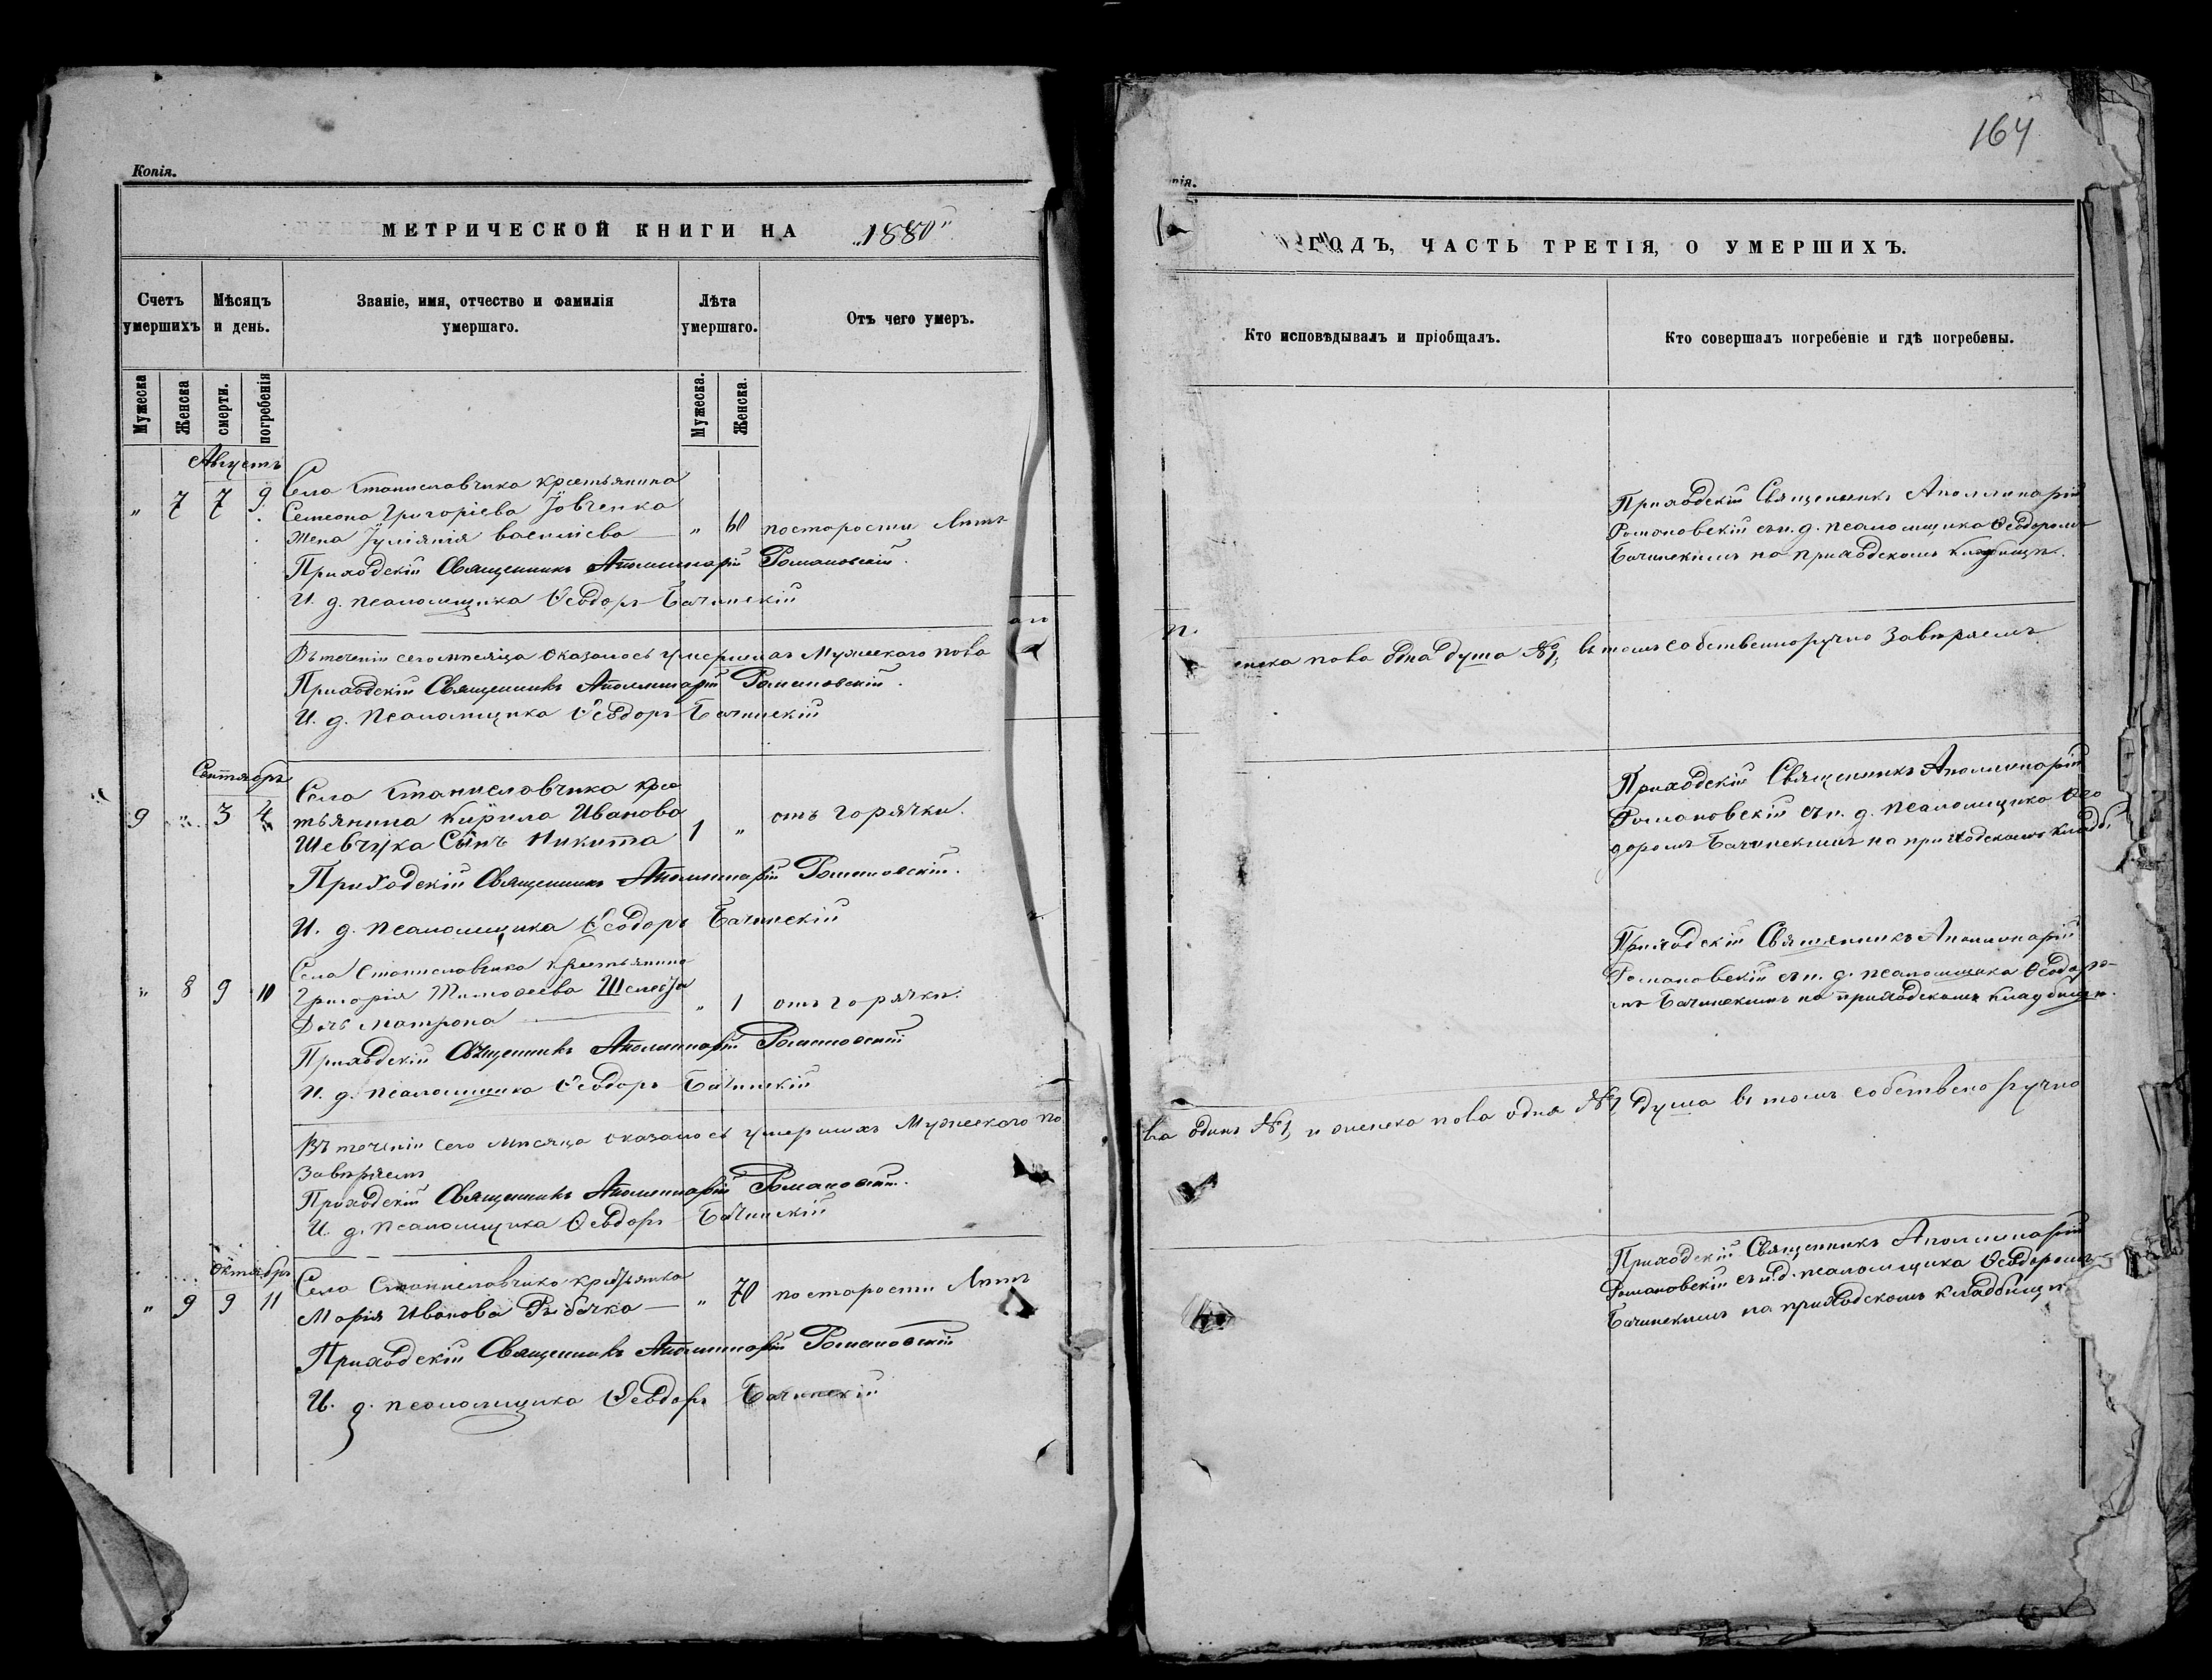 164
Копія.
МЕТРИЧЕСКОЙ КНИГИ НА „1880"
Счетъ умершихъ
Мѣсяцъ и день.
Званіе, имя, отчество и фамилія умершаго.
Лѣта умершаго.
Отъ чего умеръ.
Мужеска
Женска
смерти.
погребенія
Мужеска.
Женска.
Августъ
Села Станиславчика крестьянина
„ 7 7 9 Семеона Григоріева Іовченка
жена Іуліянія Василіева — „ 60 по старости лѣтъ
Приходскій Священникъ Аполлинарій Романовскій.
И. д. псаломщика Ѳеодоръ Бачинскій
Въ теченіи сего мѣсяца оказалось умершихъ Мужескаго пола
Приходскій Священникъ Аполлинарій Романовскій.
И. д. псаломщика Ѳеодоръ Бачинскій
Сентябрь
Села Станиславчика кресь
9 „ 3 4 тьянина Кирила Иванова
Шевчука Сынъ Никита 1 „ отъ горячки.
Приходскій Священникъ Аполлинарій Романовскій.
И. д. псаломщика Ѳеодоръ Бачинскій
Села Станиславчика крестьянина
„ 8 9 10 Григорія Тимоѳеева
Дочь Матрона — „ 1 отъ горячки.
Приходскій Священникъ Аполлинарій Романовскій
И. д. псаломщика Ѳеодоръ Бачинскій
Въ теченіи сего мѣсяца оказалось умершихъ Мужескаго по
Завѣряемъ
Приходскій Священникъ Аполлинарій Романовскій.
И. д. псаломщика Ѳеодоръ Бачинскій
Октябрь
Села Станиславчика крестьянка
„ 9 9 11 Марія Иванова — „ 70 по старости лѣтъ
Приходскій Священникъ Аполлинарій Романовскій
И. д. псаломщика Ѳеодоръ Бачинскій
ГОДЪ, ЧАСТЬ ТРЕТІЯ, О УМЕРШИХЪ.
Кто исповѣдывалъ и пріобщалъ.
Кто совершалъ погребеніе и гдѣ погребены.
Приходскій Священникъ Аполлинарій
Романовскій съ и. д. псаломщика Ѳеодоромъ
Бачинскимъ на приходскомъ кладбищѣ.
енска пола одна душа №1, въ томъ собственноручно Завѣряемъ
Приходскій Священникъ Аполлинарій
Романовскій съ и. д. псаломщика Ѳео
доромъ Бачинскимъ на приходскомъ кладб.
Приходскій Священникъ Аполлинарій
Романовскій съ и. д. псаломщика Ѳеодоро-
мъ Бачинскимъ на приходскомъ кладбищѣ.
ла одинъ №1, и женска пола одна №1 душа въ томъ собственоручно
Приходскій Священникъ Аполлинарій
Романовскій съ и. д. псаломщика Ѳеодоромъ
Бачинскимъ на приходскомъ кладбищѣ